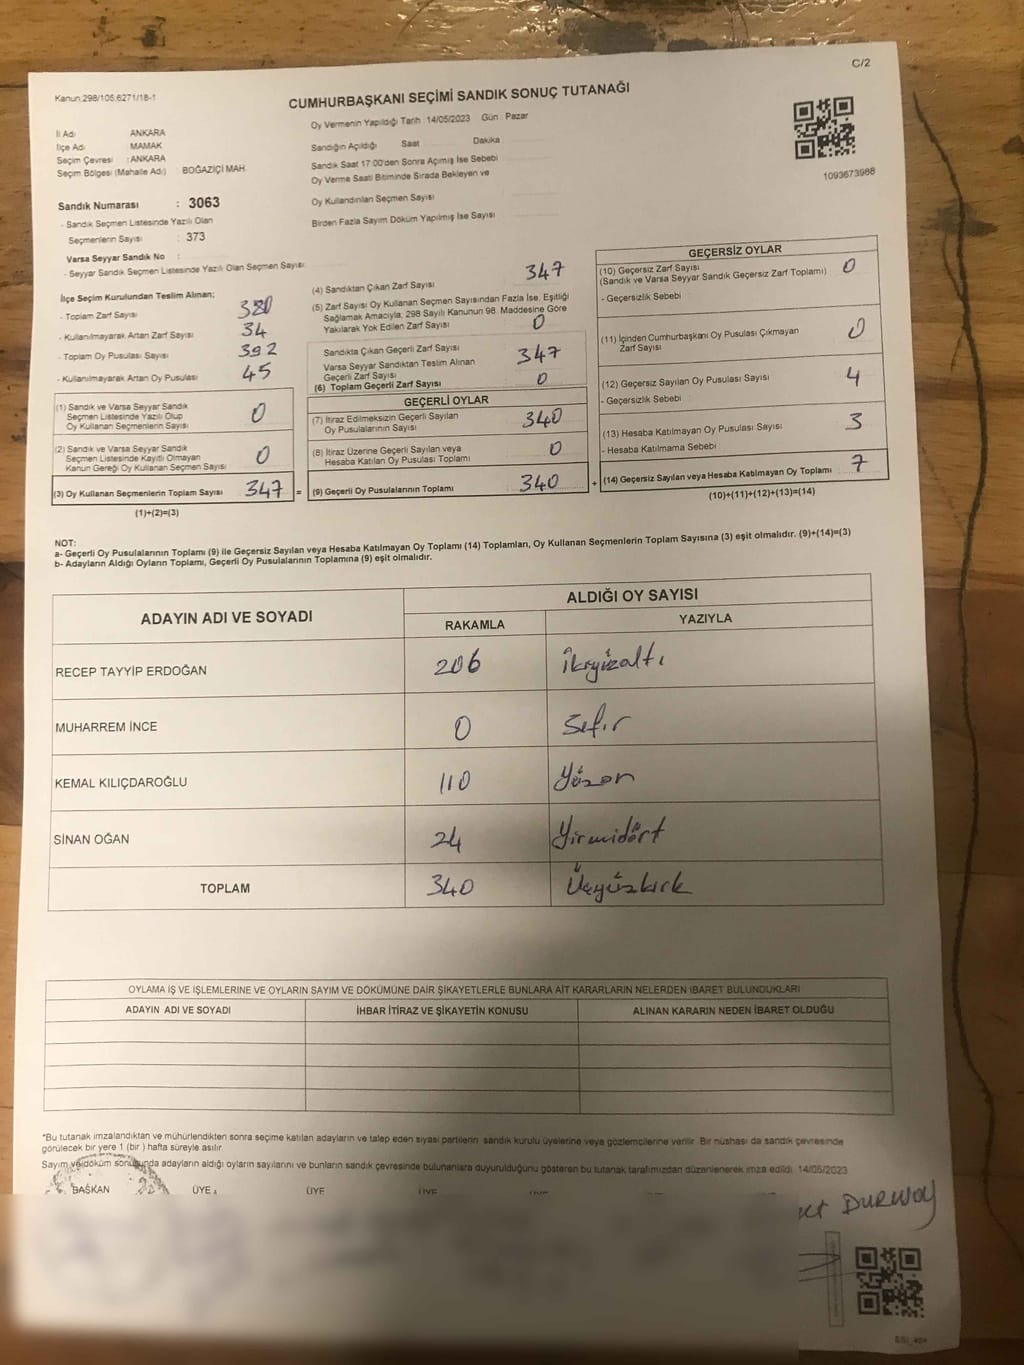 C/2
Kanun:298/105;6271/18-1
CUMHURBAŞKANI SEÇİMİ SANDIK SONUÇ TUTANAĞI
İl Adı ANKARA
İlçe Adı MAMAK
Seçim Çevresi : ANKARA
Seçim Bölgesi (Mahalle Adı) : BOĞAZİÇİ MAH.
Sandık Numarası : 3063
- Sandık Seçmen Listesinde Yazılı Olan
Seçmenlerin Sayısı : 373
Varsa Seyyar Sandık No :
- Seyyar Sandık Seçmen Listesinde Yazılı Olan Seçmen Sayısı:
Oy Vermenin Yapıldığı Tarih :14/05/2023 Gün : Pazar
Sandığın Açıldığı Saat Dakika
Sandık Saat 17:00'den Sonra Açımış İse Sebebi
Oy Verme Saati Bitiminde Sırada Bekleyen ve
Oy Kullandırılan Seçmen Sayısı
Birden Fazla Sayım Döküm Yapılmış İse Sayısı
1093673988
İlçe Seçim Kurulundan Teslim Alınan;
- Toplam Zarf Sayısı 380
- Kullanılmayarak Artan Zarf Sayısı 34
- Toplam Oy Pusulası Sayısı 392
- Kullanılmayarak Artan Oy Pusulası 45
(1) Sandık ve Varsa Seyyar Sandık
Seçmen Listesinde Yazılı Olup
Oy Kullanan Seçmenlerin Sayısı 0
(2) Sandık ve Varsa Seyyar Sandık
Seçmen Listesinde Kayıtlı Olmayan
Kanun Gereği Oy Kullanan Seçmen Sayısı 0
(3) Oy Kullanan Seçmenlerin Toplam Sayısı 347 =
(1)+(2)=(3)
(4) Sandıktan Çıkan Zarf Sayısı 347
(5) Zarf Sayısı Oy Kullanan Seçmen Sayısından Fazla İse, Eşitliği
Sağlamak Amacıyla; 298 Sayılı Kanunun 98. Maddesine Göre
Yakılarak Yok Edilen Zarf Sayısı 0
Sandıkta Çıkan Geçerli Zarf Sayısı 347
Varsa Seyyar Sandıktan Teslim Alınan
Geçerli Zarf Sayısı
(6) Toplam Geçerli Zarf Sayısı 0
GEÇERLİ OYLAR
(7) İtiraz Edilmeksizin Geçerli Sayılan
Oy Pusulalarının Sayısı 340
(8) İtiraz Üzerine Geçerli Sayılan veya
Hesaba Katılan Oy Pusulası Toplamı 0
(9) Geçerli Oy Pusulalarının Toplamı 340 +
GEÇERSİZ OYLAR
(10) Geçersiz Zarf Sayısı 0
(Sandık ve Varsa Seyyar Sandık Geçersiz Zarf Toplamı)
- Geçersizlik Sebebi
(11) İçinden Cumhurbaşkanı Oy Pusulası Çıkmayan
Zarf Sayısı 0
(12) Geçersiz Sayılan Oy Pusulası Sayısı 4
- Geçersizlik Sebebi
(13) Hesaba Katılmayan Oy Pusulası Sayısı 3
- Hesaba Katılmama Sebebi
(14) Geçersiz Sayılan veya Hesaba Katılmayan Oy Toplamı 7
(10)+(11)+(12)+(13)=(14)
NOT:
a- Geçerli Oy Pusulalarının Toplamı (9) ile Geçersiz Sayılan veya Hesaba Katılmayan Oy Toplamı (14) Toplamları, Oy Kullanan Seçmenlerin Toplam Sayısına (3) eşit olmalıdır. (9)+(14)=(3)
b- Adayların Aldığı Oyların Toplamı, Geçerli Oy Pusulalarının Toplamına (9) eşit olmalıdır.
ADAYIN ADI VE SOYADI ALDIĞI OY SAYISI
RAKAMLA YAZIYLA
RECEP TAYYİP ERDOĞAN 206 İkiyüzaltı
MUHARREM İNCE 0 Sıfır
KEMAL KILIÇDAROĞLU 110 Yüzon
SİNAN OĞAN 24 Yirmidört
TOPLAM 340 Üçyüzkırk
OYLAMA İŞ VE İŞLEMLERİNE VE OYLARIN SAYIM VE DÖKÜMÜNE DAİR ŞİKAYETLERLE BUNLARA AİT KARARLARIN NELERDEN İBARET BULUNDUKLARI
ADAYIN ADI VE SOYADI İHBAR İTİRAZ VE ŞİKAYETİN KONUSU ALINAN KARARIN NEDEN İBARET OLDUĞU
*Bu tutanak imzalandıktan ve mühürlendikten sonra seçime katılan adayların ve talep eden siyasi partilerin sandık kurulu üyelerine veya gözlemcilerine verilir. Bir nüshası da sandık çevresinde
görülecek bir yere 1 (bir ) hafta süreyle asılır.
Sayım ve döküm sonucunda adayların aldığı oyların sayılarını ve bunların sandık çevresinde bulunanlara duyurulduğunu gösteren bu tutanak tarafımızdan düzenlenerek imza edildi. 14/05/2023
BAŞKAN ÜYE ÜYE ÜYE
DURWOY